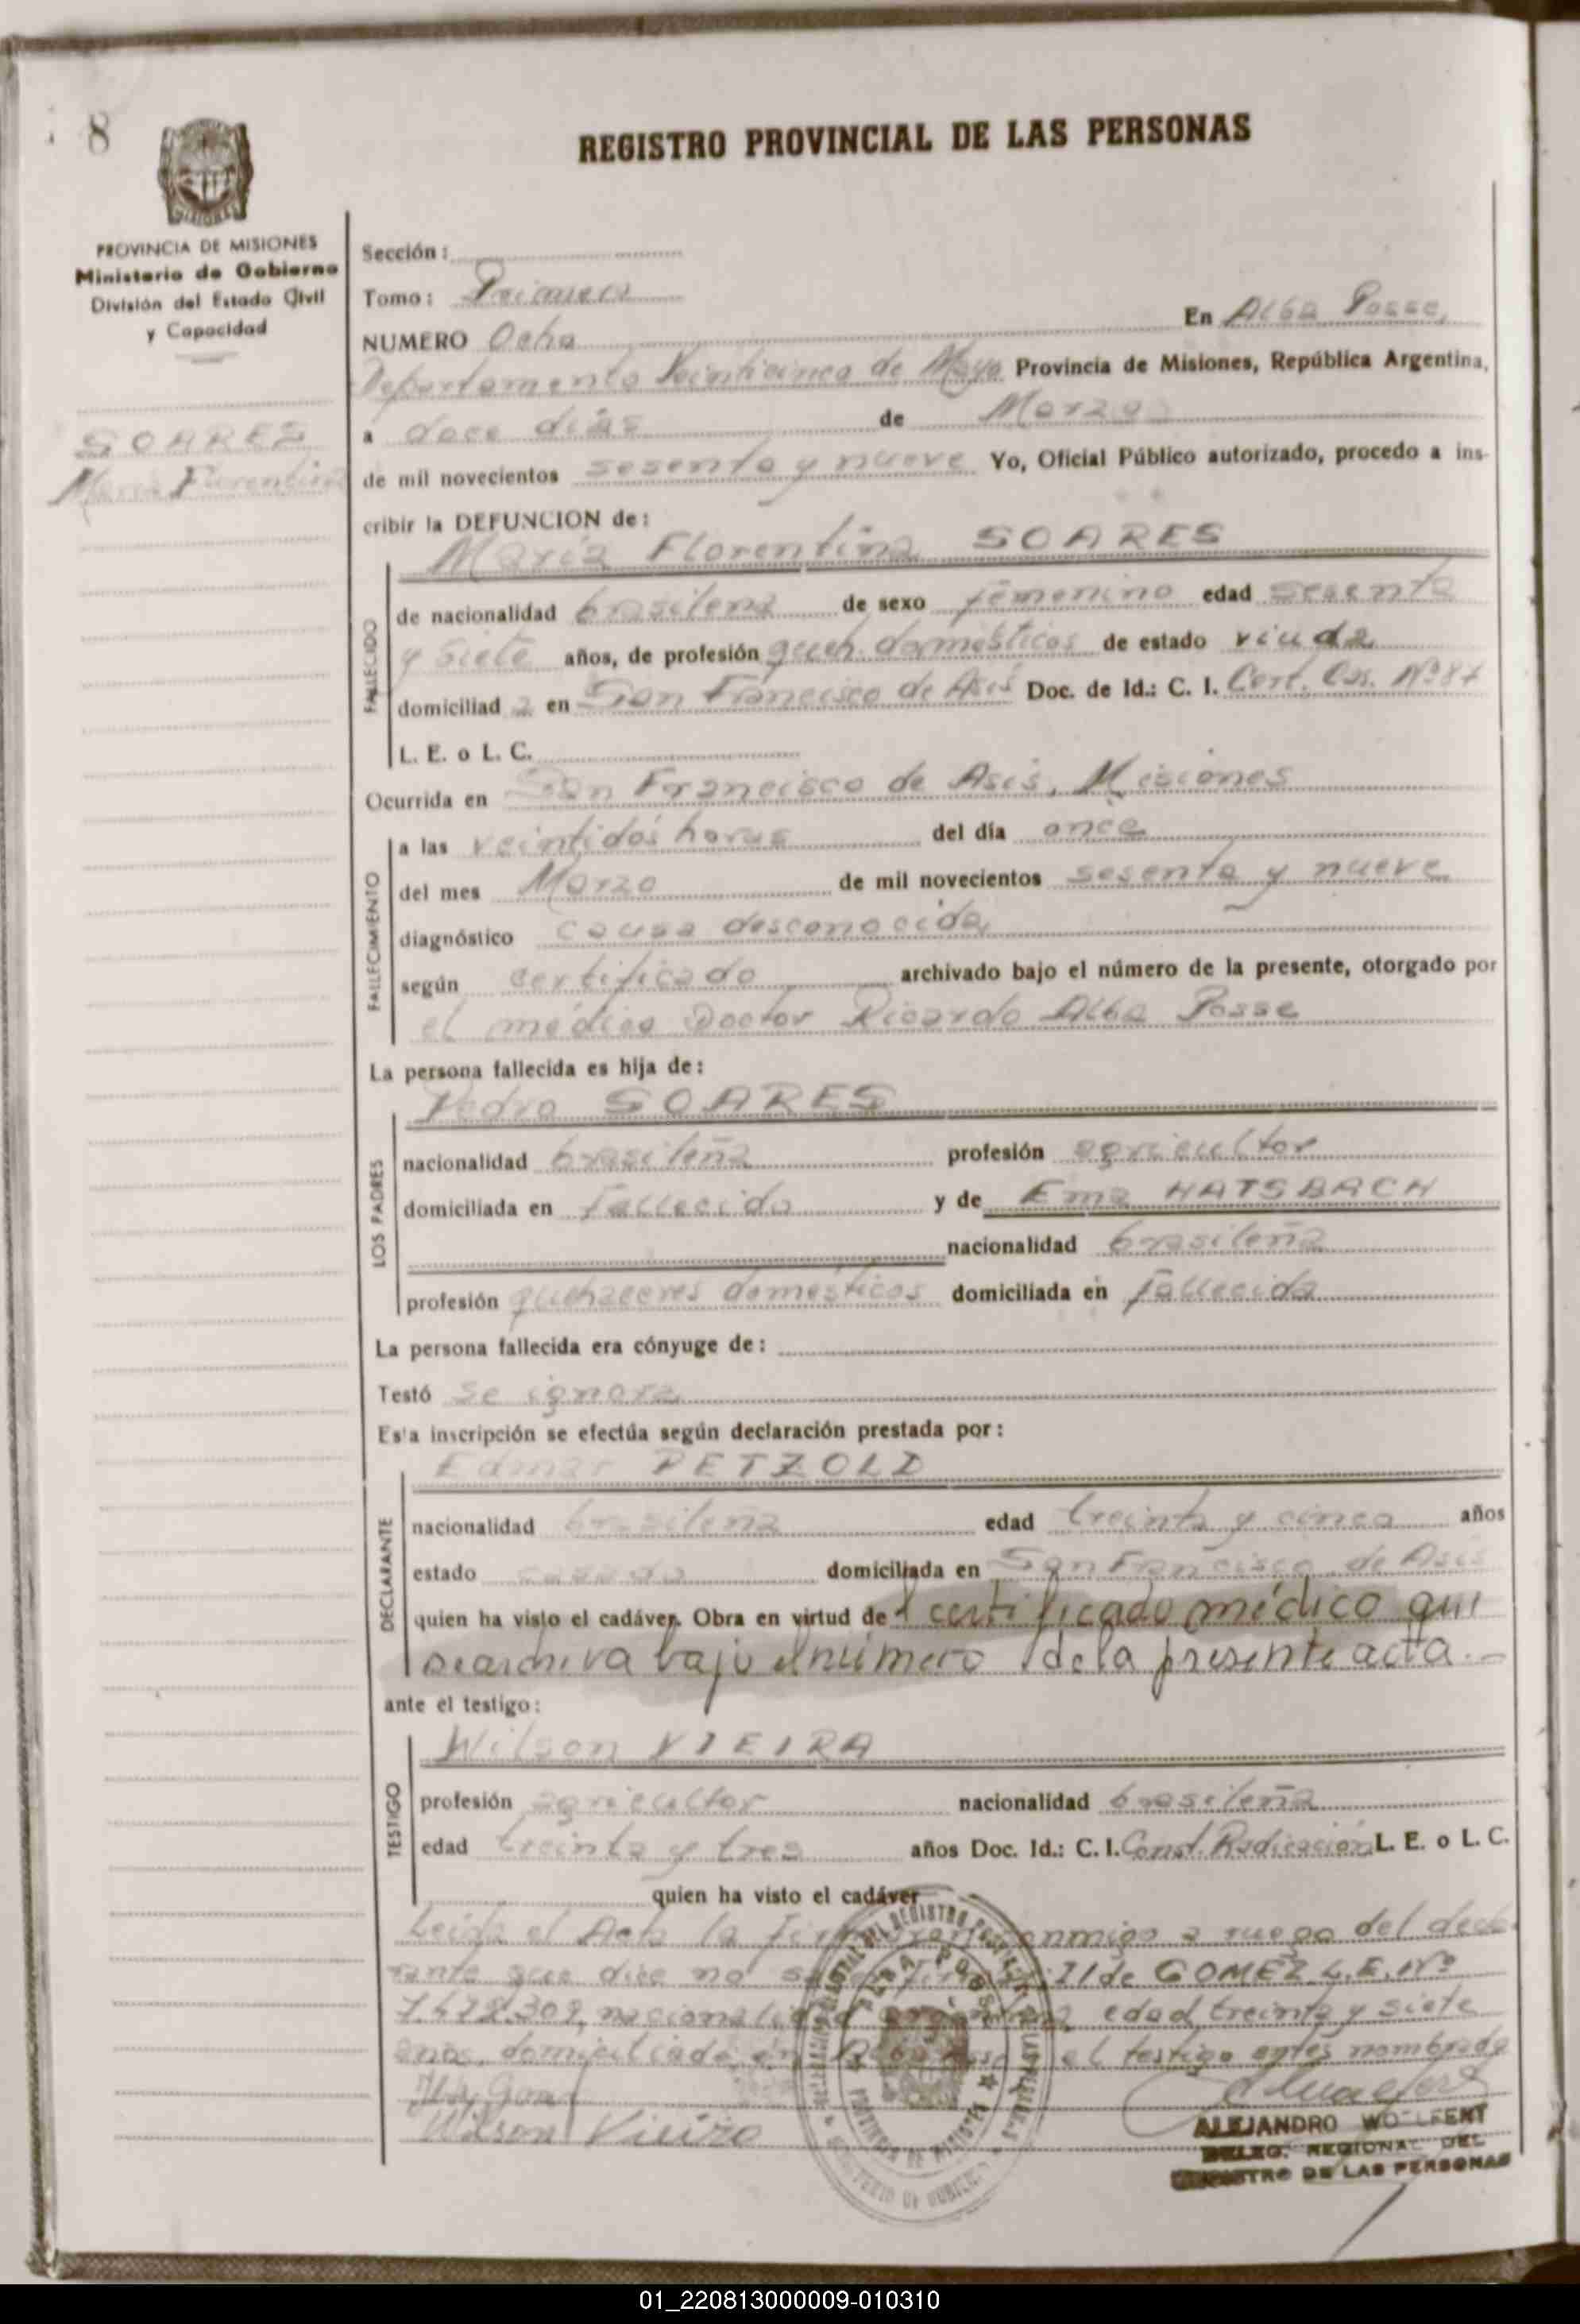 8
REGISTRO PROVINCIAL DE LAS PERSONAS
PROVINCIA DE MISIONES
Ministerio de Gobierno
División del Estado Civil
y Capacidad
SOARES
María Florentina
Sección:
Tomo: Primero
NUMERO Ocho En Alba Posse,
Departamento Veinticinco de Mayo Provincia de Misiones, República Argentina,
a doce días de Marzo
de mil novecientos sesenta y nueve Yo, Oficial Público autorizado, procedo a ins-
cribir la DEFUNCION de:
María Florentina SOARES
FALLECIDO
de nacionalidad brasileña de sexo femenino edad sesenta
y siete años, de profesión queh. domésticos de estado viuda
domiciliad a en San Francisco de Asís Doc. de Id.: C. I. Cert. Cos. Nº 87
L. E. o L. C.
Ocurrida en San Francisco de Asís, Misiones
FALLECIMIENTO
a las veintidós horas del día once
del mes Marzo de mil novecientos sesenta y nueve
diagnóstico causa desconocida
según certificado archivado bajo el número de la presente, otorgado por
el médico Doctor Ricardo Alba Posse
La persona fallecida es hija de:
Pedro SOARES
LOS PADRES
nacionalidad brasileña profesión agricultor
domiciliada en fallecido y de Ema HATSBACH
nacionalidad brasileña
profesión quehaceres domésticos domiciliada en fallecida
La persona fallecida era cónyuge de:
Testó se ignora
Esta inscripción se efectúa según declaración prestada por:
Edmar PETZOLD
DECLARANTE
nacionalidad brasileña edad treinta y cinco años
estado casado domiciliada en San Francisco de Asís
quien ha visto el cadáver. Obra en virtud del certificado médico que
se archiva bajo el número de la presente acta.-
ante el testigo:
Wilson VIEIRA
TESTIGO
profesión agricultor nacionalidad brasileña
edad treinta y tres años Doc. Id.: C. I. Const. Radicación L. E. o L. C.
quien ha visto el cadáver
Leída el Acta la firmaron conmigo a ruego del decla-
rante que dice no saber firmar Ilde GOMEZ L.E. Nº
7.478.309, nacionalidad argentina, edad treinta y siete
años, domiciliado en Alba Posse y el testigo antes nombrado
Wilson Vieira
ALEJANDRO WOLFERT
DELEG. REGIONAL DEL
REGISTRO DE LAS PERSONAS
01_220813000009-010310